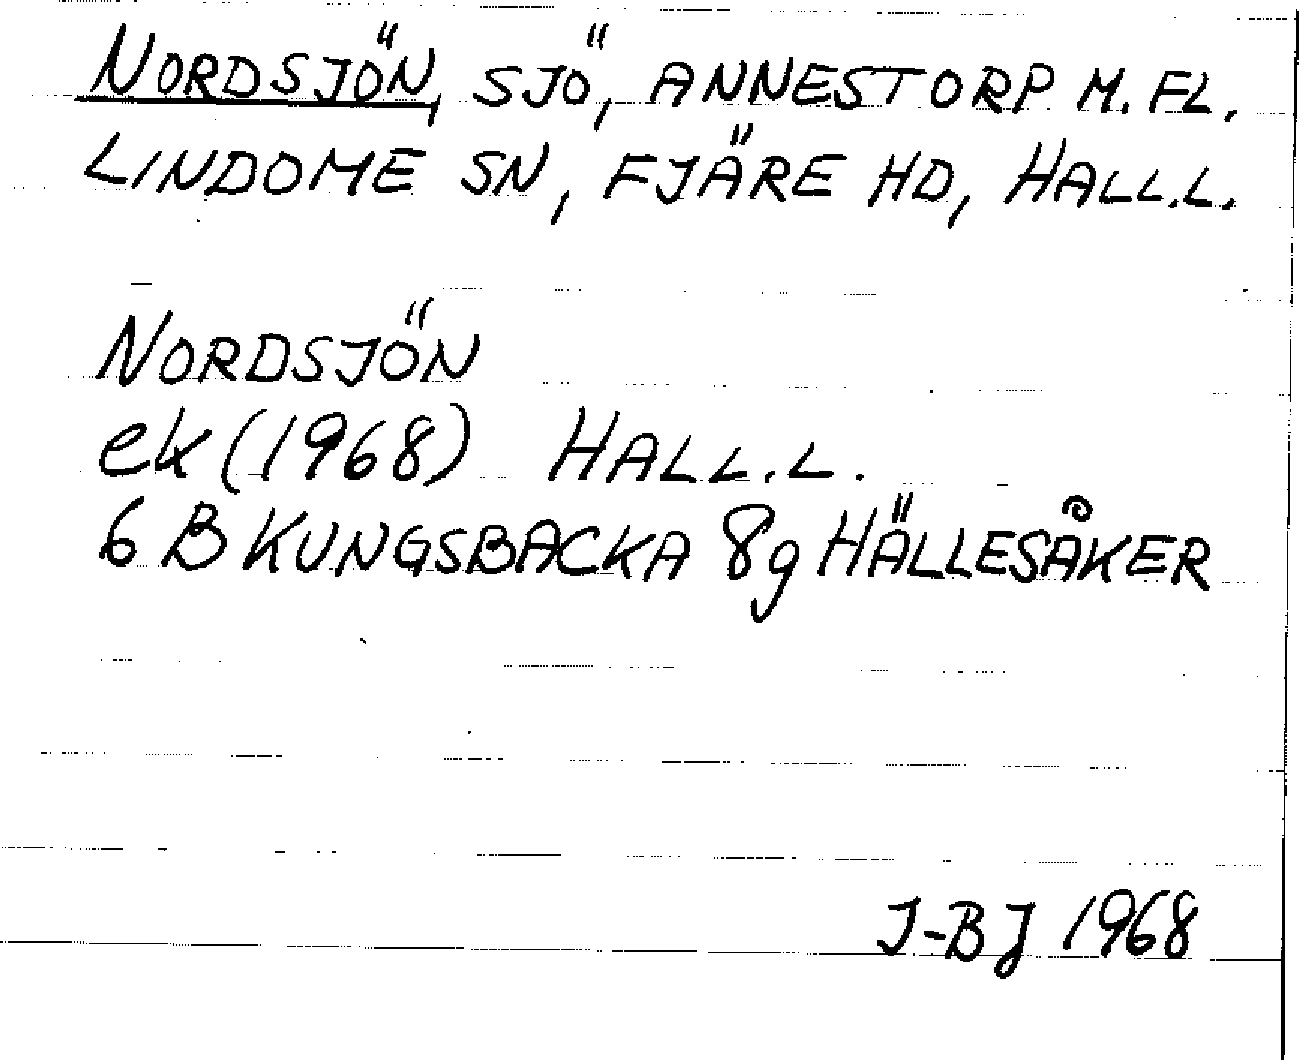 NORDSJÖN, SJÖ, ANNESTORP M. FL.
LINDOME SN, FJÄRE HD, HALL.L.
NORDSJÖN
ek (1968) HALL.L.
6 B KUNGSBACKA 8g HÄLLESÅKER
J-BJ 1968